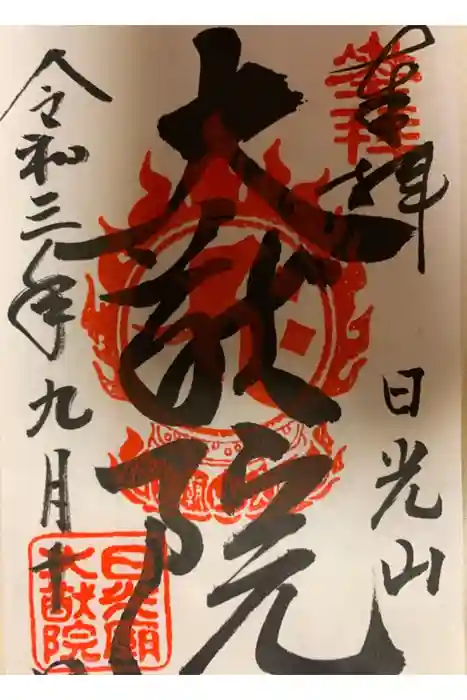 奉拝
日光山
大猷院
令和三年九月十
日光廟
大猷院